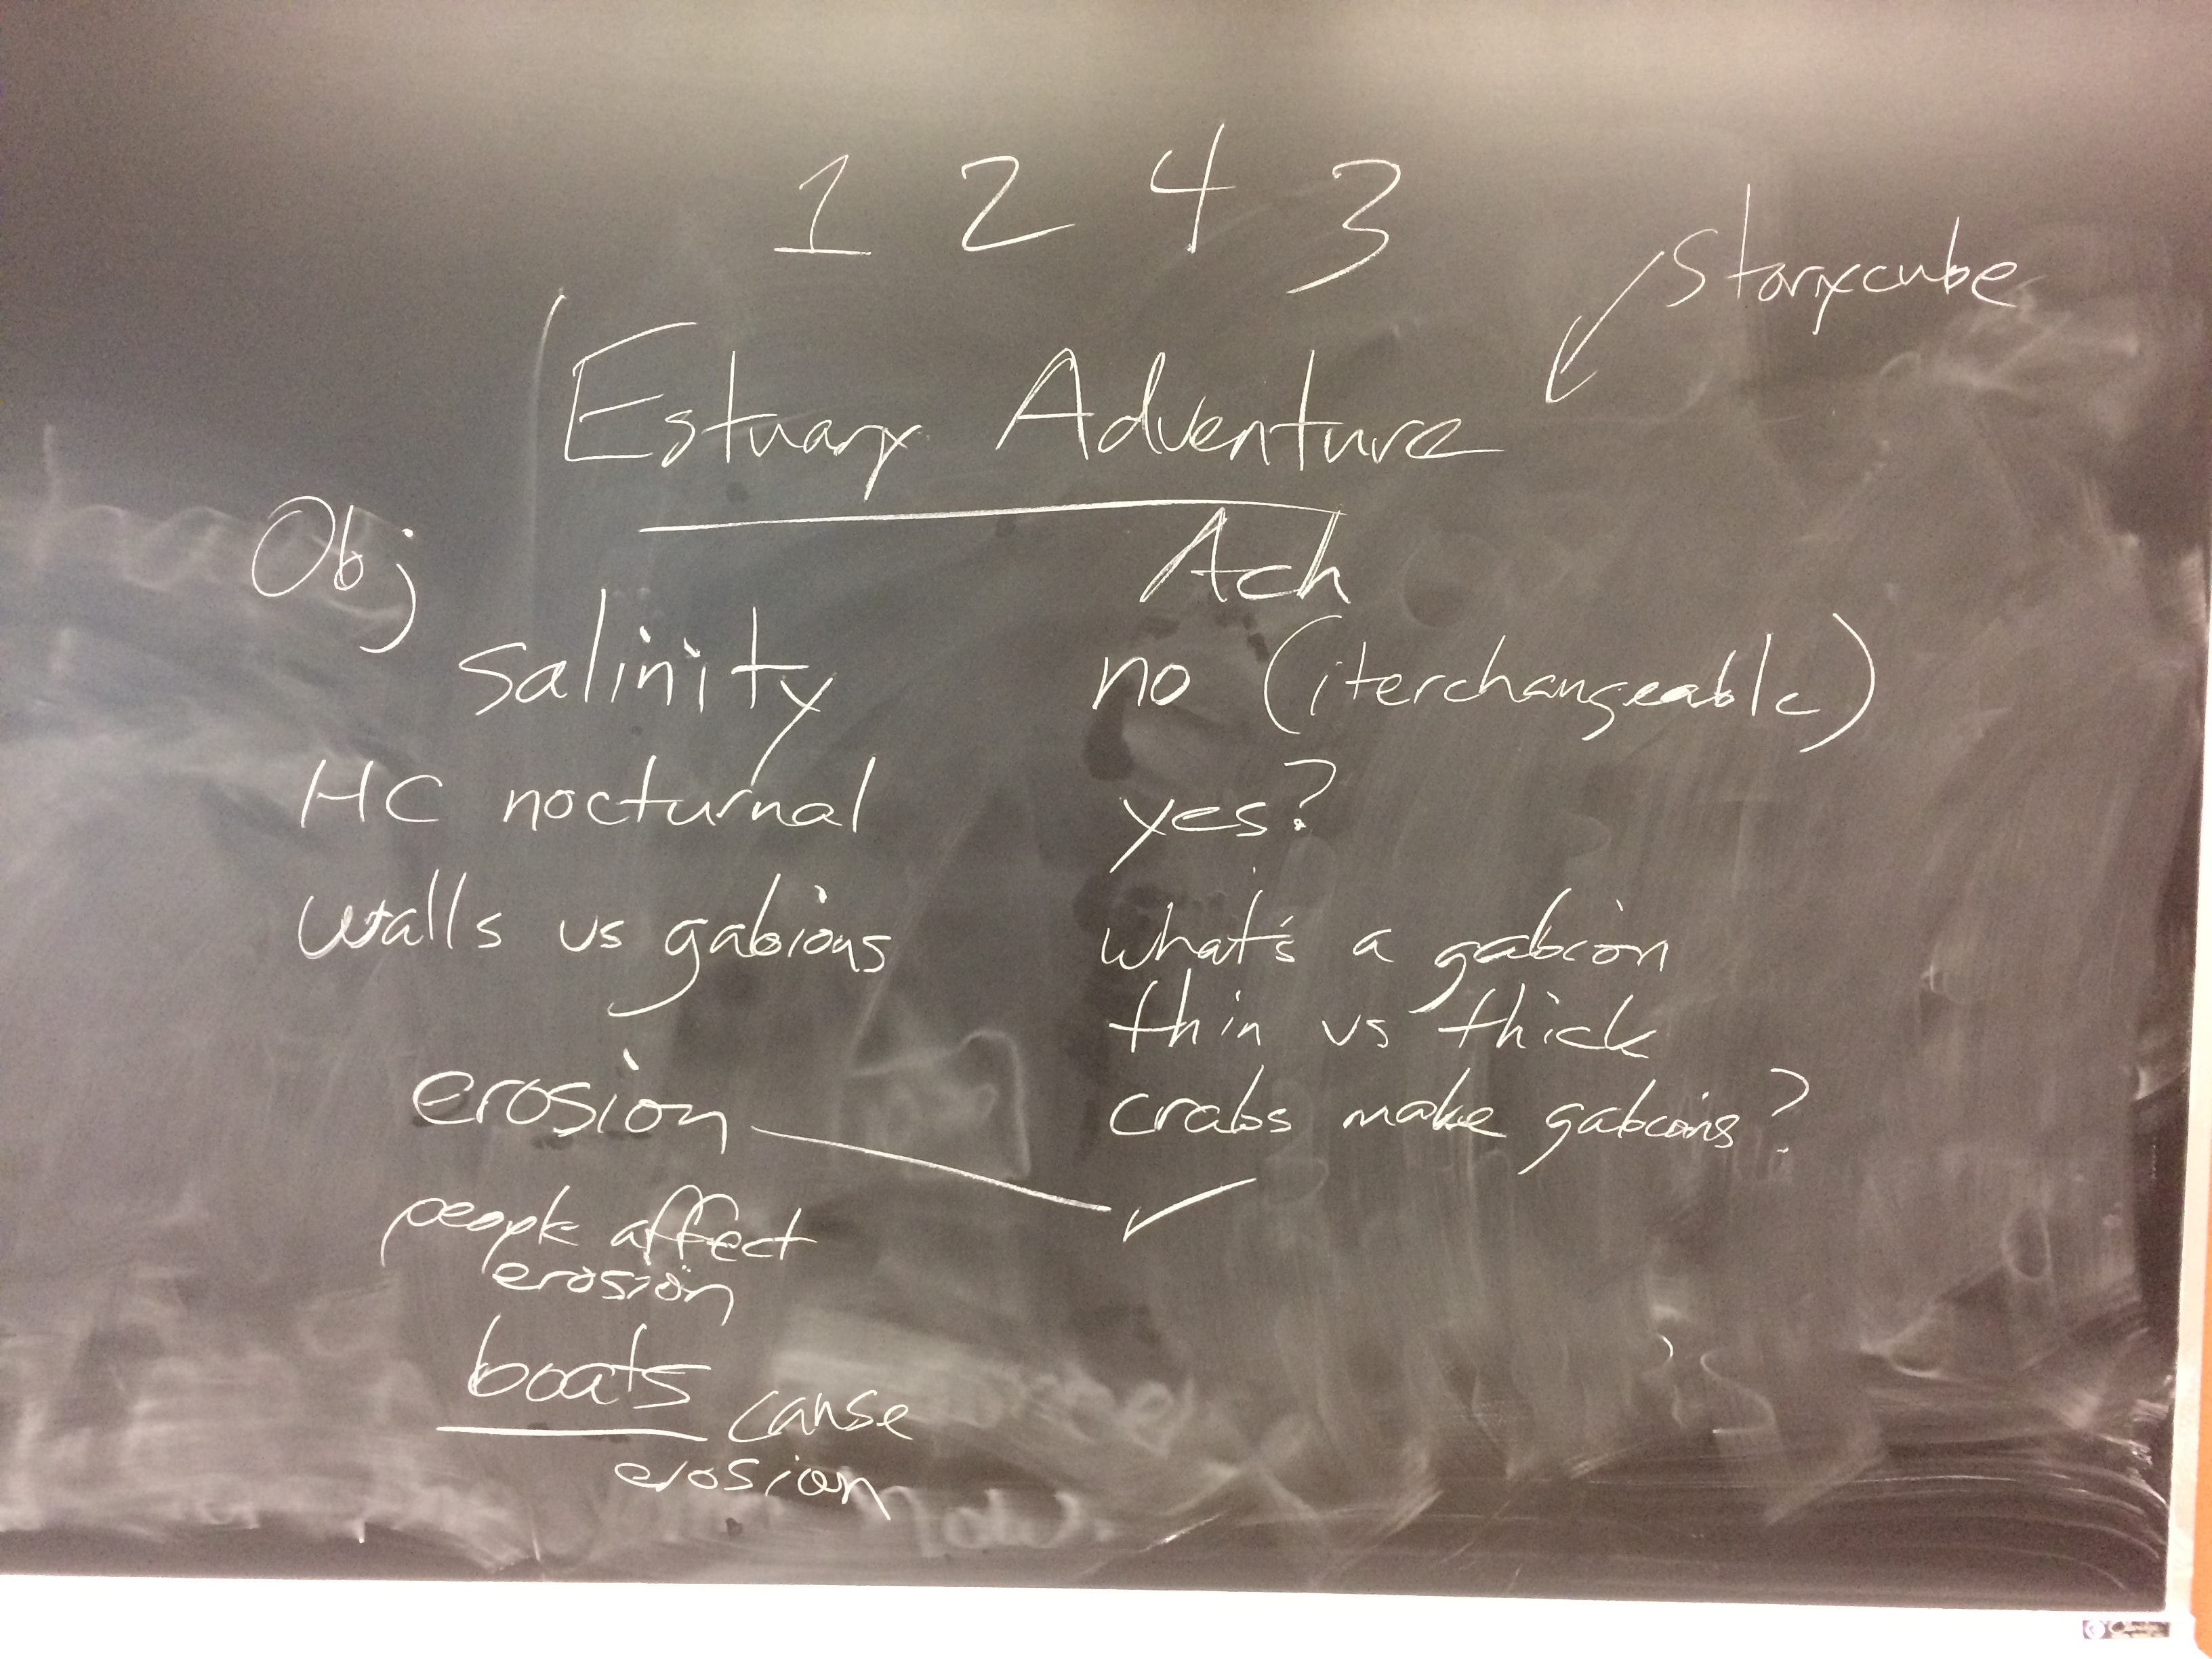 1 2 4 3
Storycube
Estuary Adventure
Obj
Ach
salinity
no (iterchangeable)
HC nocturnal
yes?
walls vs gabions
what's a gabion
thin vs thick
erosion
crabs make gabions?
people affect
erosion
boats cause
erosion